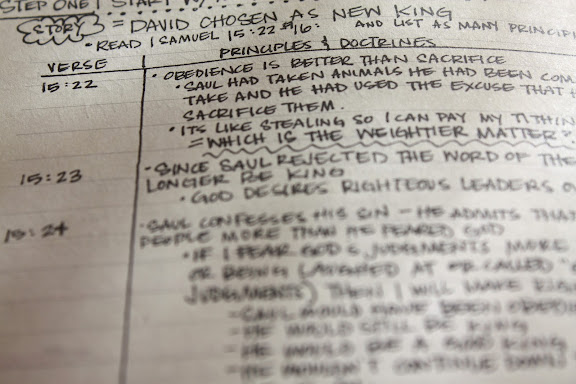 STEP ONE | START
STORY = DAVID CHOSEN AS NEW KING
• READ 1 SAMUEL 15:22 & 16: AND LIST AS MANY
VERSE PRINCIPLES & DOCTRINES
15:22 • OBEDIENCE IS BETTER THAN SACRIFICE
• SAUL HAD TAKEN ANIMALS HE HAD BEEN
TAKE AND HE HAD USED THE EXCUSE THAT
SACRIFICE THEM.
• ITS LIKE STEALING SO I CAN PAY MY
= WHICH IS THE WEIGHTIER MATTER?
15:23 • SINCE SAUL REJECTED THE WORD OF THE
LONGER BE KING
• GOD DESIRES RIGHTEOUS LEADERS
15:24 • SAUL CONFESSES HIS SIN - HE ADMITS THAT
PEOPLE MORE THAN HE FEARED GOD
• IF I FEAR GOD'S JUDGMENTS MORE
OR BEING LAUGHED AT OR CALLED
JUDGMENTS) THEN I WILL MAKE
- SAUL WOULD HAVE BEEN
- HE WOULD STILL BE KING
- HE WOULD BE A GOOD KING
- HE WOULDN'T CONTINUE DOWN